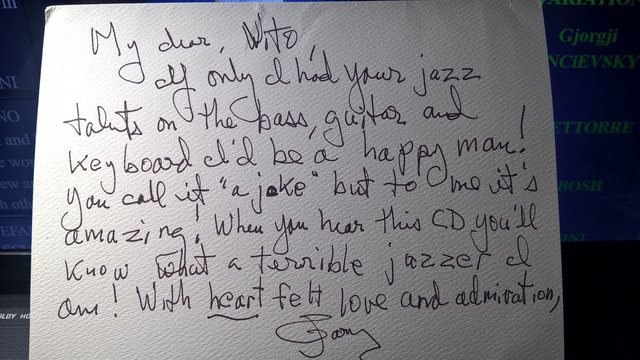 My dear, Wito,
If only I had your jazz
talents on the bass, guitar and
keyboard I'd be a happy man!
you call it "a joke" but to me it's
amazing! When you hear this CD you'll
know what a terrible jazzer I
am! With heart felt love and admiration,
Gary
VARIATION
Gjorgji
NCiEVSKY
ETTORRE
BOSH
INI
III
NI
NO
DOLBY HO